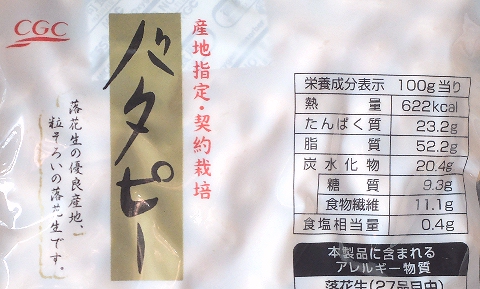 CGC
産地指定・契約栽培
バタピー
落花生の優良産地、
粒そろいの落花生です。
栄養成分表示 100g当り
熱量 622kcal
たんぱく質 23.2g
脂質 52.2g
炭水化物 20.4g
糖質 9.3g
食物繊維 11.1g
食塩相当量 0.4g
本製品に含まれる
アレルギー物質
落花生(27品目中)